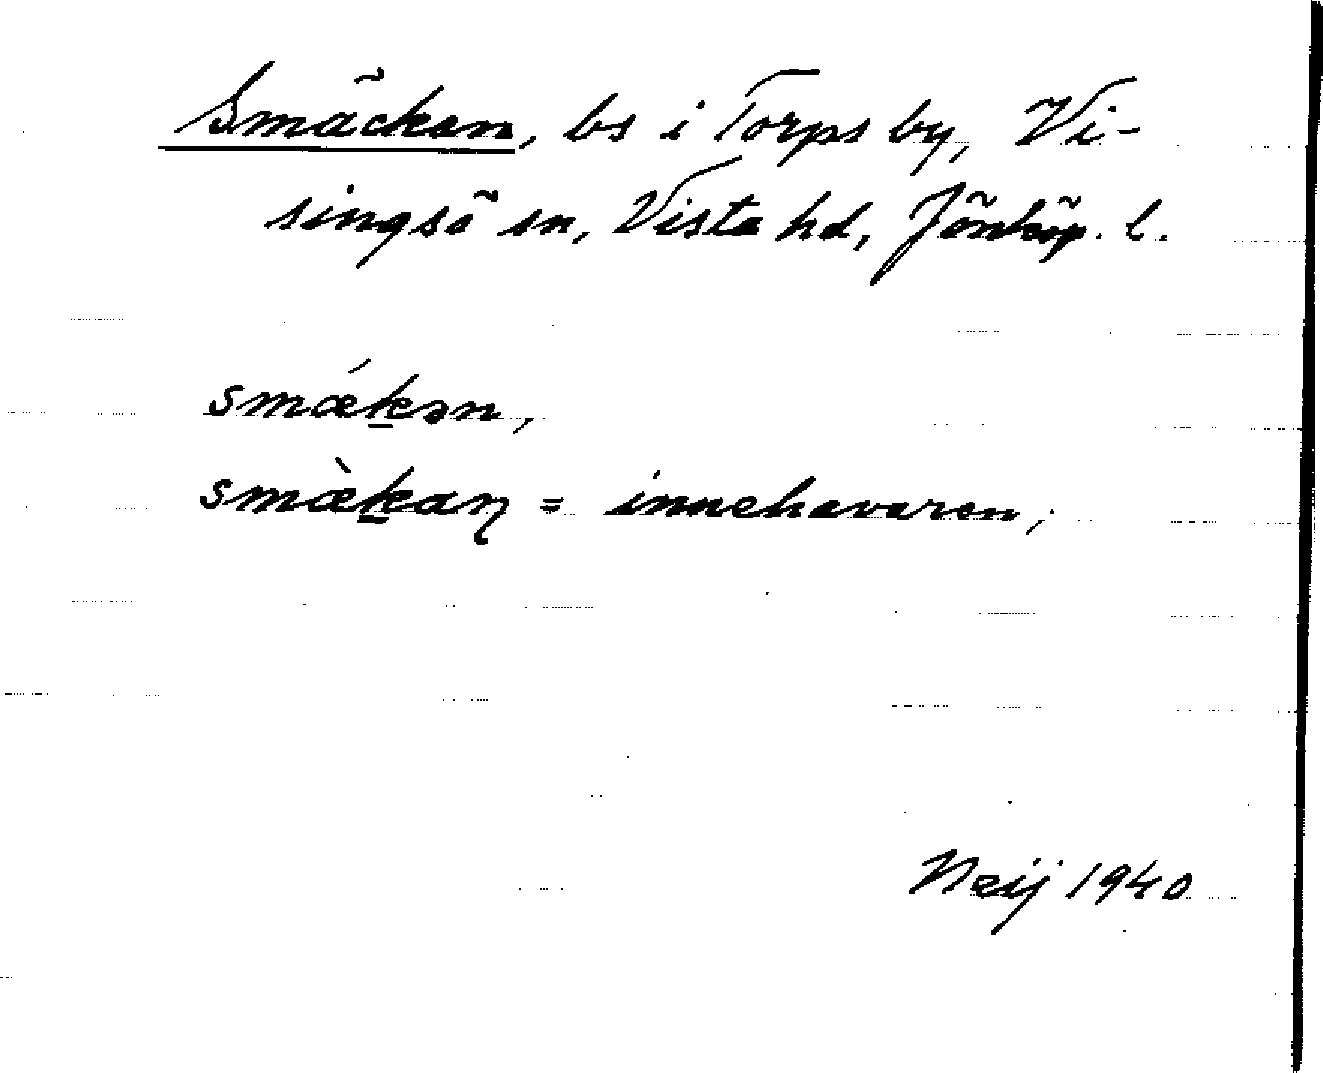 Smäcken, bs i Torps by, Vi-
singsö sn, Vista hd, Jönköp. l.
smǽk̲ən,
smæ̀k̲aɳ = innehavaren,
Neij 1940